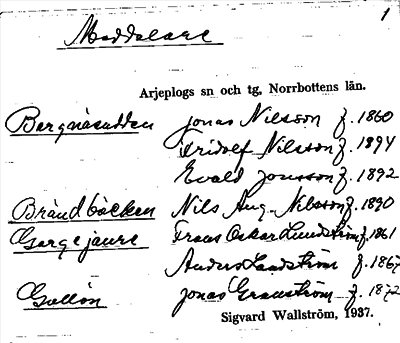 1
Meddelare
Arjeplogs sn och tg, Norrbottens län.
Bergnäsudden Jonas Nilsson f. 1860
Fridolf Nilsson f. 1894
Evald Jonsson f. 1892
Brändbäcken Nils Aug. Nilsson f. 1890
Gargejaure Frans Oskar Lundström f. 1861
Anders Lundström f. 1867
Gullön Jonas Granström f. 1872
Sigvard Wallström, 1937.